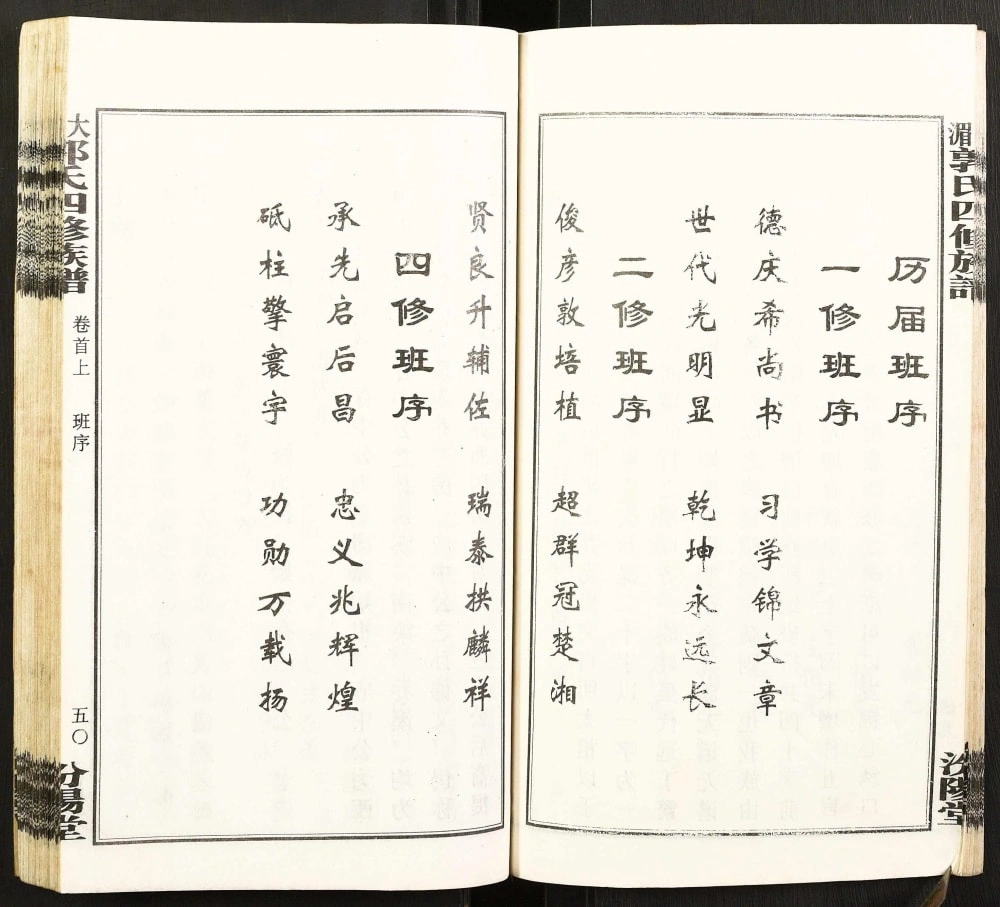 湄郭氏四修族譜
汾陽堂
历届班序
一修班序
德庆希尚书 习学锦文章
世代光明显 乾坤永远长
二修班序
俊彦敦培植 超群冠楚湘
贤良升辅佐 瑞泰拱麟祥
四修班序
承先启后昌 忠义兆辉煌
砥柱擎寰宇 功勋万载扬
大郭氏四修族譜
卷首上 班序
五〇
汾陽堂